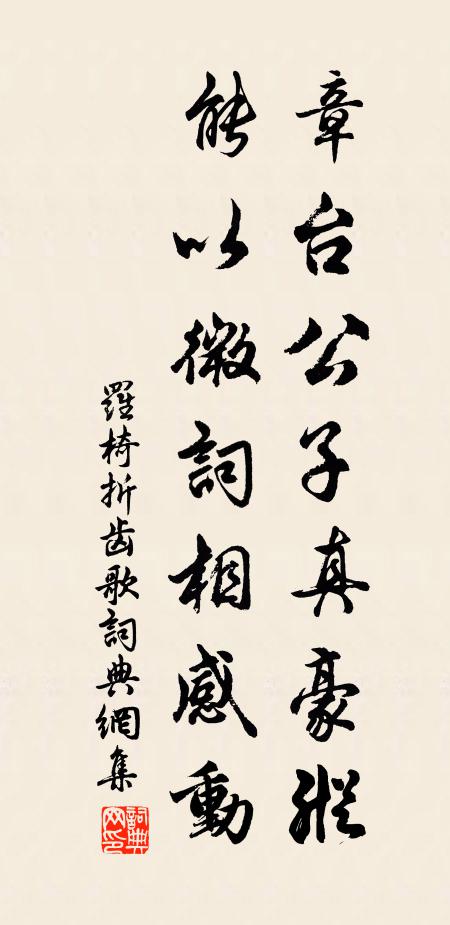 章台公子真豪縱
能以微詞相感動
羅椅折齒歌詞典網集
詞典網印